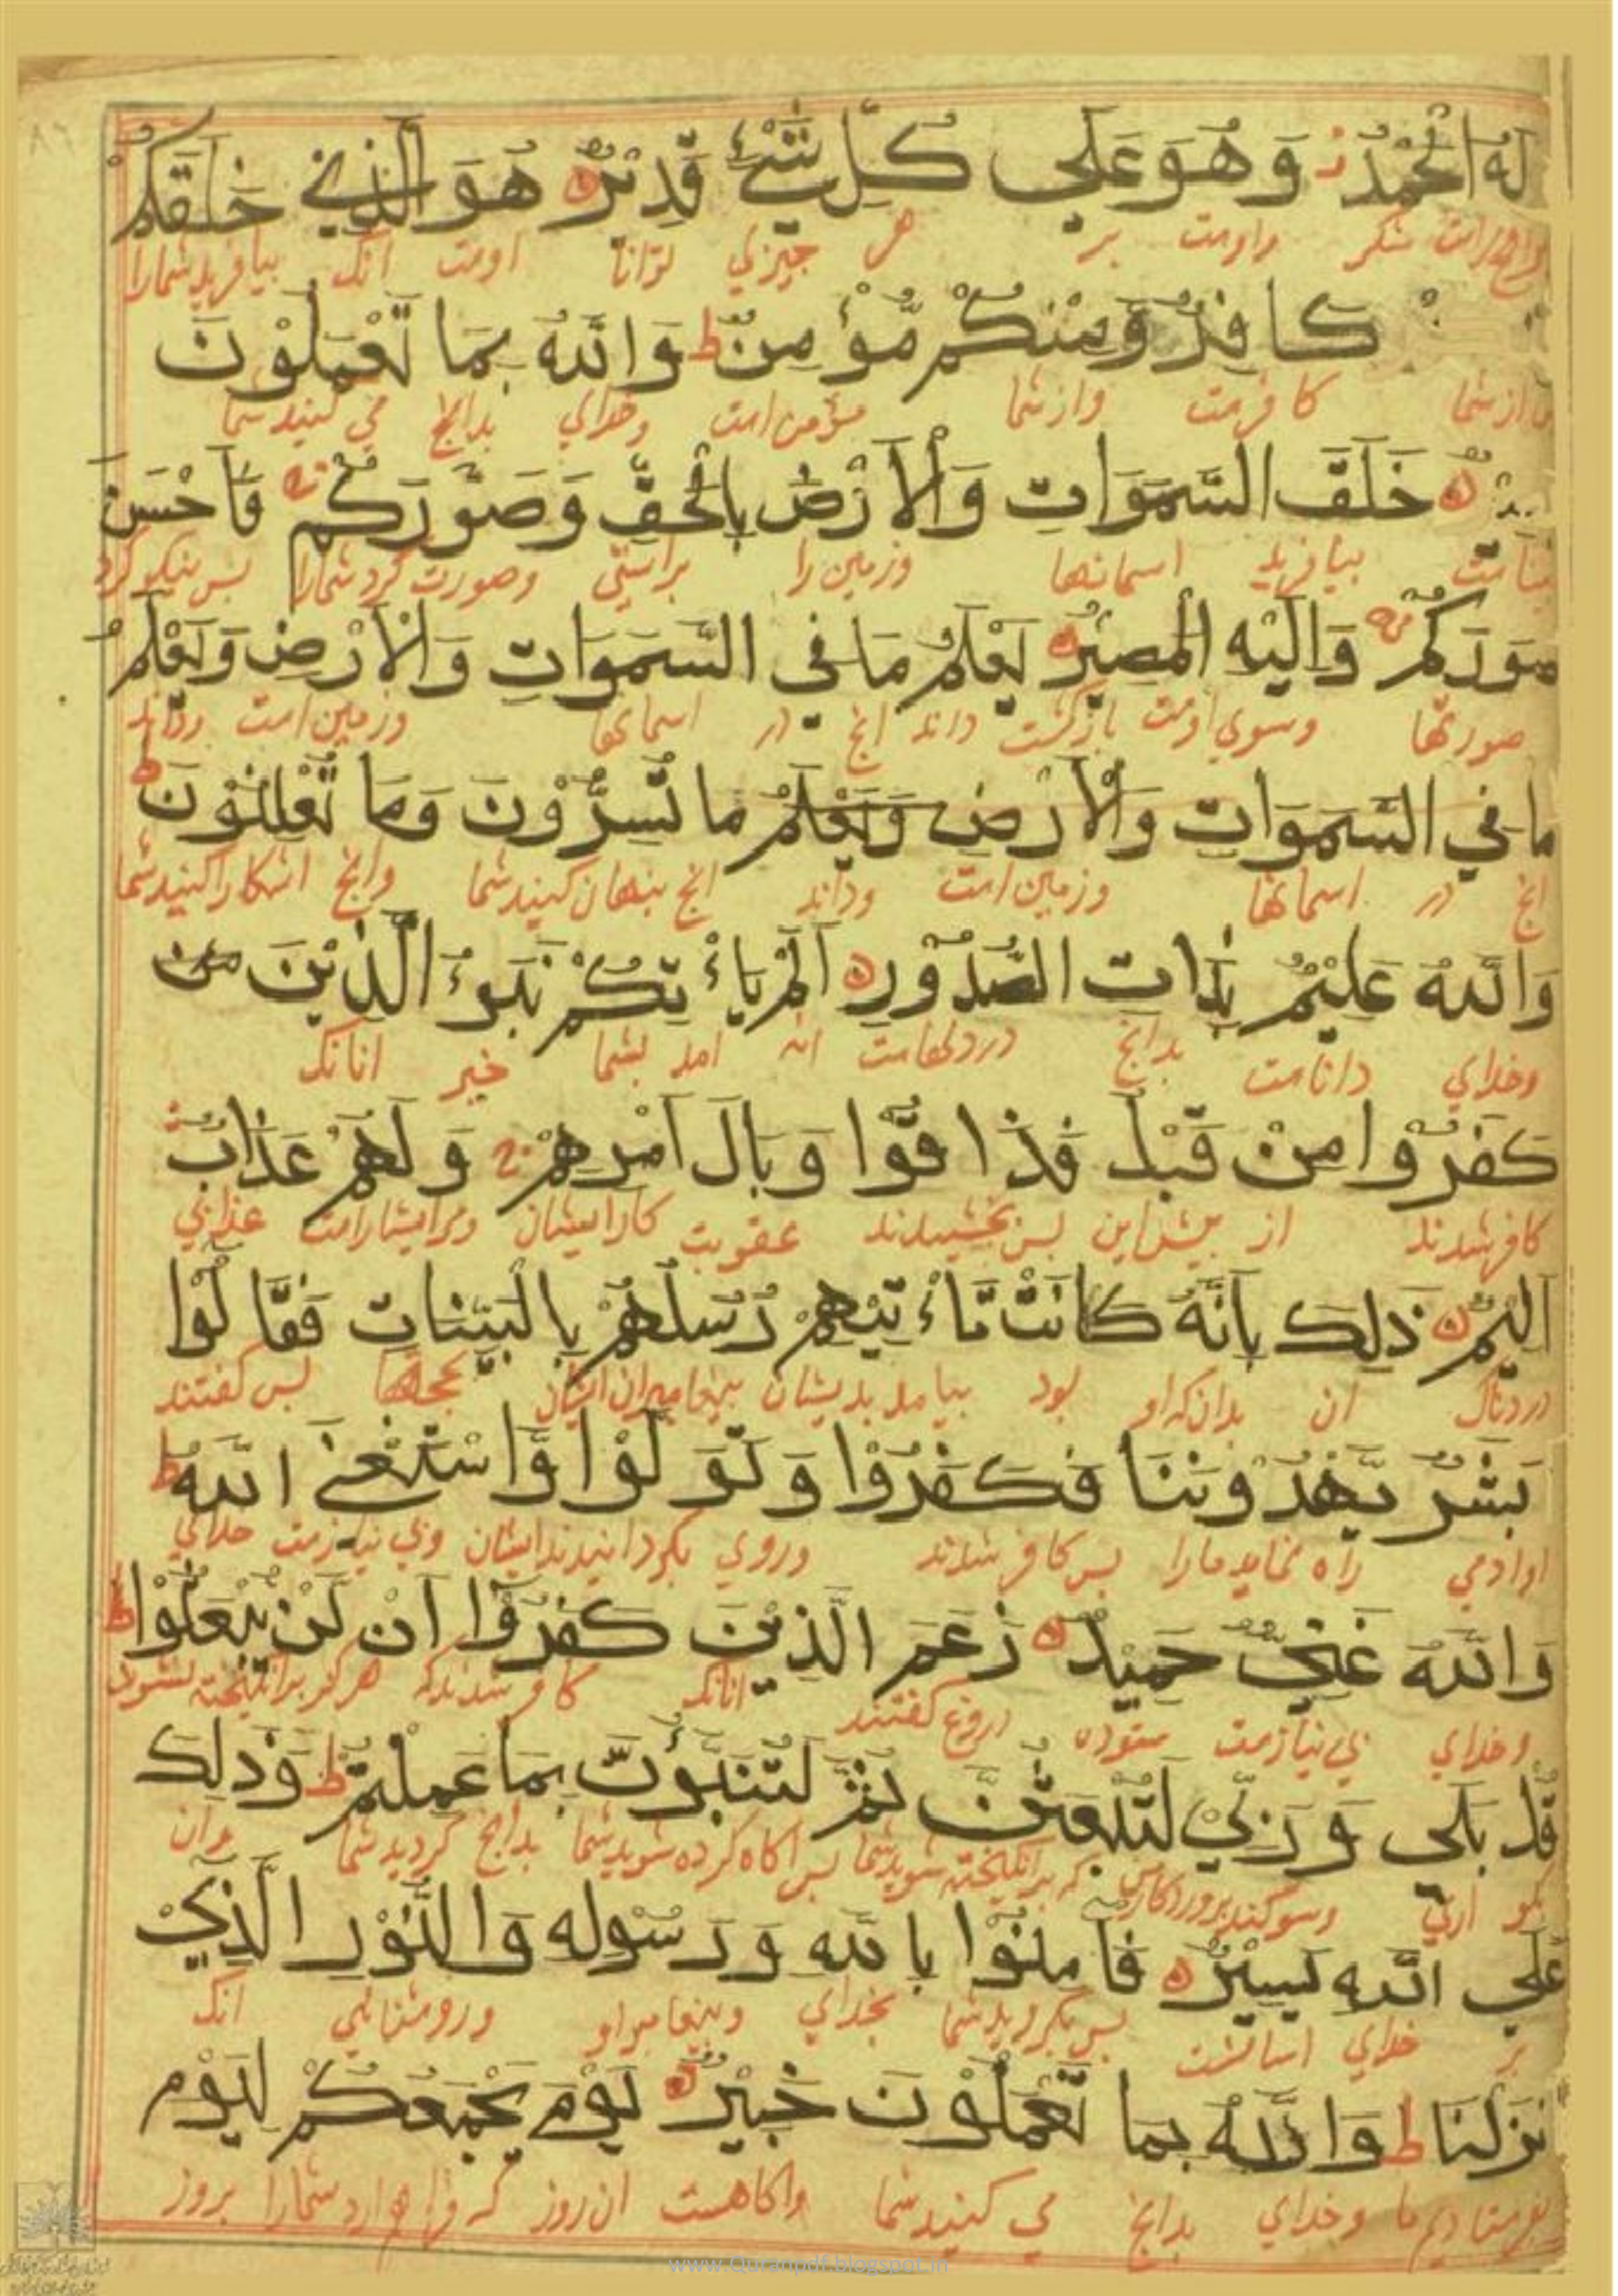 لَهُ الْحَمْدُ ز وَهُوَ عَلَى كُلِّ شَيْءٍ قَدِيْرٌ هُوَ الَّذِي خَلَقَكُمْ
شكر واوست بر هر چیزي توانا اوست آنک بیافرید شمارا
كَافِرٌ وَّمِنْكُمْ مُّؤْمِنٌ ط وَاللّٰهُ بِمَا تَعْمَلُوْنَ
از شما كافرست واز شما مؤمن است وخداي بدانچ مي كنید شما
خَلَقَ السَّمَوَاتِ وَالْاَرْضَ بِالْحَقِّ وَصَوَّرَكُمْ فَاَحْسَنَ
بیافرید اسمانها وزمین را براستي وصورت كرد شمارا بس نیكو كرد
صُوَرَكُمْ وَاِلَيْهِ الْمَصِيْرُ يَعْلَمُ مَا فِي السَّمَوَاتِ وَالْاَرْضِ وَيَعْلَمُ
صورتها وسوي اوست بازگشت داند انچ در اسمانها وزمین است وداند
مَا فِي السَّمَوَاتِ وَالْاَرْضِ وَيَعْلَمُ مَا تُسِرُّوْنَ وَمَا تُعْلِنُوْنَ ط
انچ در اسمانها وزمین است وداند انچ بنهان كنید شما وانچ اشكارا كنید شما
وَاللّٰهُ عَلِيْمٌ بِذَاتِ الصُّدُوْرِ اَلَمْ يَاْءْتِكُمْ نَبَوءُ الَّذِيْنَ من
وخداي داناست بدانچ در دلهاست انه امد بشما خبر انانک
كَفَرُوْا مِنْ قَبْلُ فَذَاقُوْا وَبَالَ اَمْرِهِمْ وَلَهُمْ عَذَابٌ
كافر شدند از بیش این بس بچشیدند عقوبت كار ایشان ومر ایشانراست عذابي
اَلِيْمٌ ذٰلِكَ بِاَنَّهُ كَانَتْ تَاْءْتِيْهِمْ رُسُلُهُمْ بِالْبَيِّنَاتِ فَقَالُوْا
دردناک ان بدان كه او بود بیامد بدیشان بیغامبران ایشان بحجتها بس گفتند
بَشَرٌ يَهْدُوْنَنَا فَكَفَرُوْا وَتَوَلَّوْا وَّاسْتَغْنَى اللّٰهُ ط
اوادمي راه نماید مارا بس كافر شدند وروي بگردانیدند ایشان وبي نیازست خداي
وَاللّٰهُ غَنِيٌّ حَمِيْدٌ زَعَمَ الَّذِيْنَ كَفَرُوْا اَنْ لَنْ يُبْعَثُوْا ط
وخداي بي نیازست ستوده دروغ گفتند انانک كافر شدند كه هرگز برانگیخته نشوند
قُلْ بَلَى وَرَبِّيْ لَتُبْعَثُنَّ ثُمَّ لَتُنَبَّؤُنَّ بِمَا عَمِلْتُمْ ط وَذٰلِكَ
بگو اري وسوگند بروردگار من كه برانگیخته شوید شما بس اگاه كرده شوید شما بدانچ كردید شما وان
عَلَى اللّٰهِ يَسِيْرٌ فَاٰمِنُوْا بِاللّٰهِ وَرَسُوْلِهِ وَالنُّوْرِ الَّذِيْ
بر خداي اسانست بس بگروید شما بخداي وبیغامبر او وروشنائي انک
نْزَلْنَا ط وَاللّٰهُ بِمَا تَعْمَلُوْنَ خَبِيْرٌ يَوْمَ يَجْمَعُكُمْ لِيَوْمِ
بفرستادیم ما وخداي بدانچ مي كنید شما واگاهست ان روز كه فراهم ارد شمارا بروز
www.Quranpdf.blogspot.in